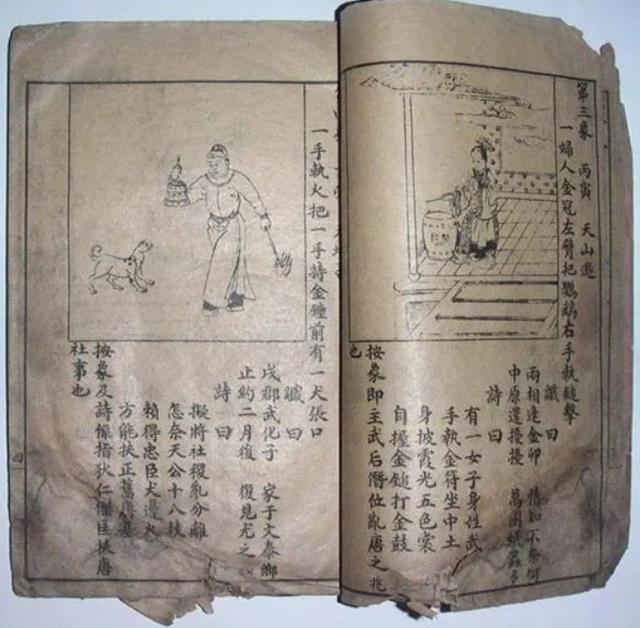 第三象　丙寅　天山遯
一婦人金冠左臂把鸚鵡右手執鎚擊
讖曰
兩相逢金卯　情知不奈何
中原還擾擾　萬國
詩曰
有一女子身姓武
手執金符坐中土
身披霞光五色裳
自握金鎚打金鼓
按象即主武后僭位亂唐之兆
也
一手執火把一手持金鐘前有一犬張口
讖曰
戌郡武化子　家子文泰鄉
止約二月後　復見尤之
詩曰
擬將社稷亂分離
怎奈天公十八枝
賴得忠臣犬邊火
方能扶正舊唐基
按象及詩係指狄仁傑匡扶唐
社事也
四